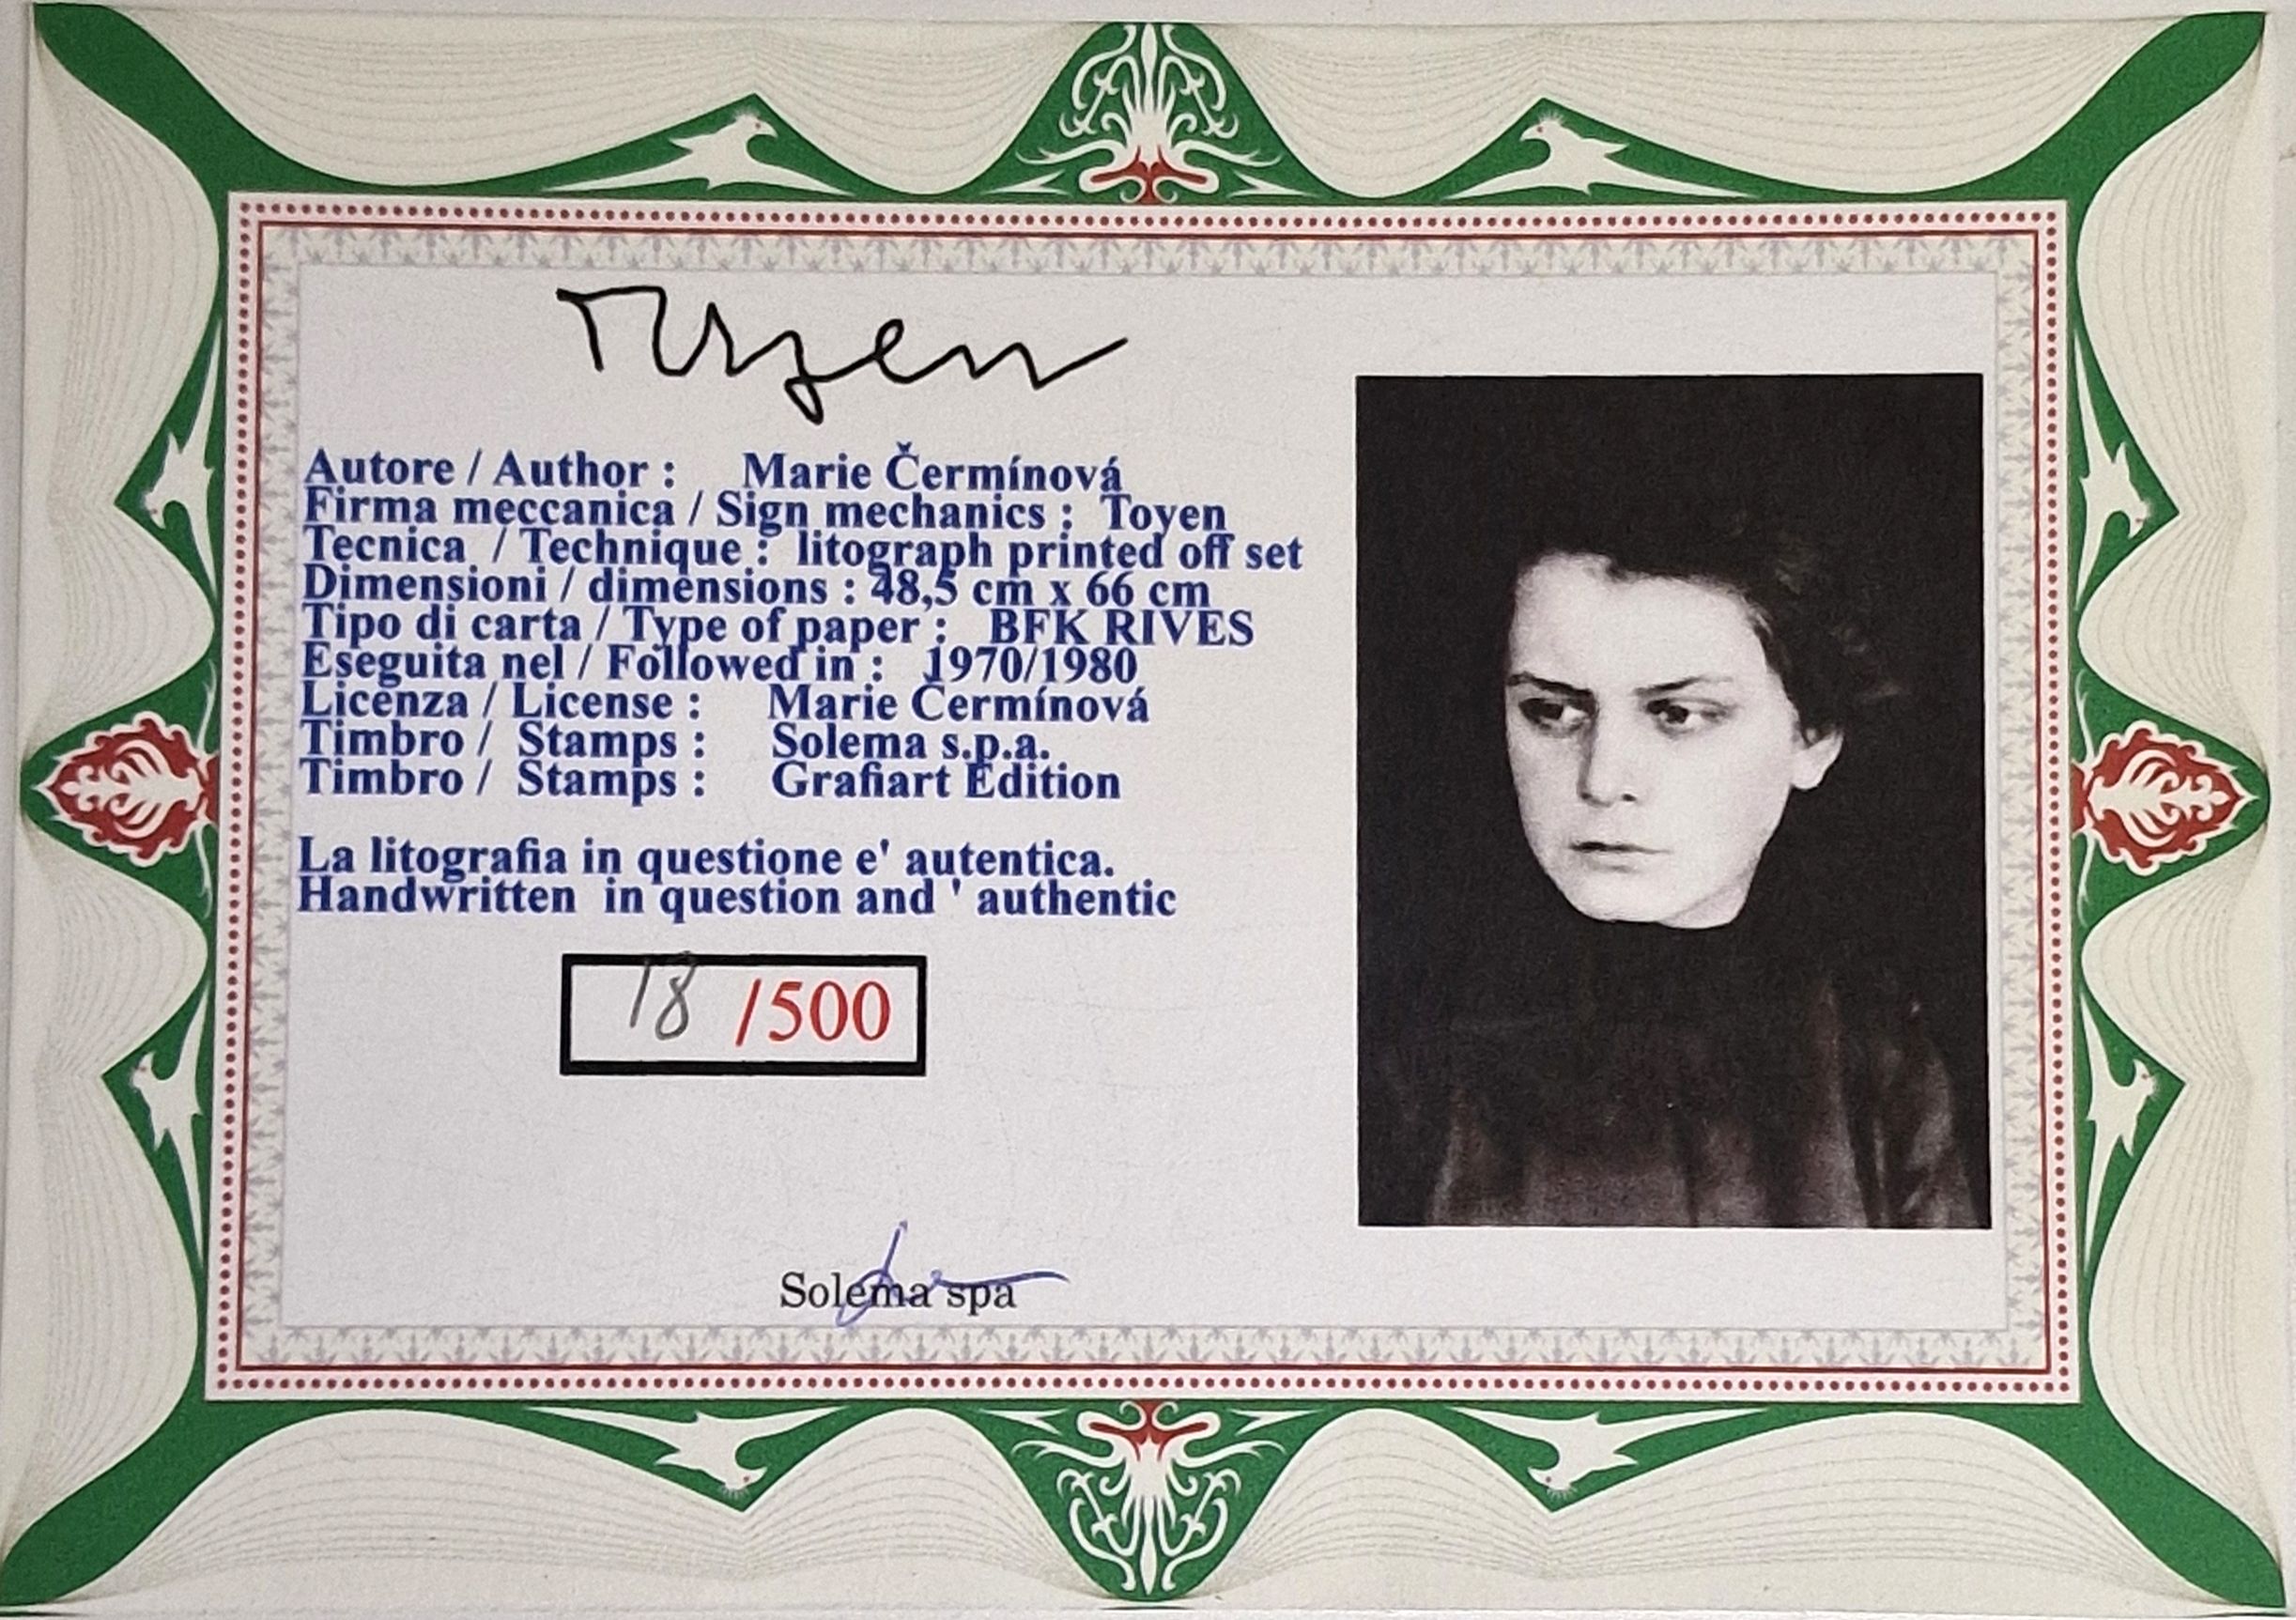 Toyen
Autore / Author : Marie Čermínová
Firma meccanica / Sign mechanics : Toyen
Tecnica / Technique : litograph printed off set
Dimensioni / dimensions : 48,5 cm x 66 cm
Tipo di carta / Type of paper : BFK RIVES
Eseguita nel / Followed in : 1970/1980
Licenza / License : Marie Čermínová
Timbro / Stamps : Solema s.p.a.
Timbro / Stamps : Grafiart Edition
La litografia in questione e' autentica.
Handwritten in question and ' authentic
18 /500
Solema spa